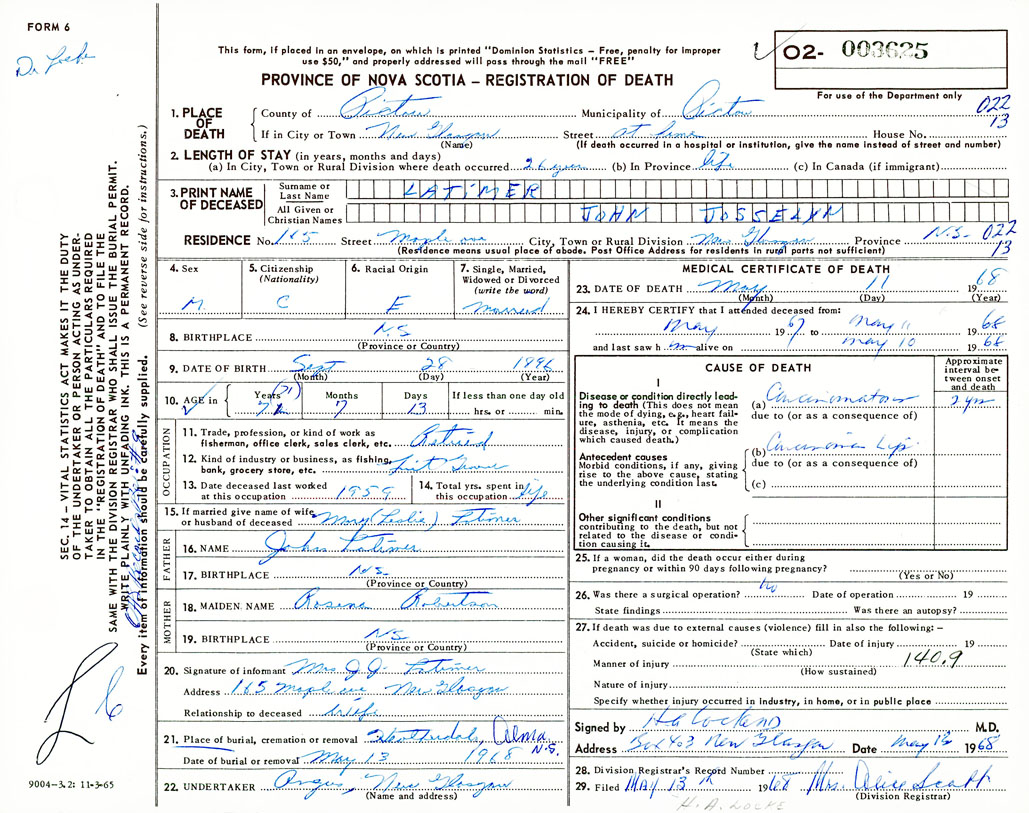 FORM 6
Dr Locke
This form, if placed in an envelope, on which is printed "Dominion Statistics – Free, penalty for improper
use $50," and properly addressed will pass through the mail "FREE"
PROVINCE OF NOVA SCOTIA – REGISTRATION OF DEATH
02- 003625
For use of the Department only
022
13
1. PLACE OF DEATH
County of Pictou Municipality of Pictou
If in City or Town New Glasgow Street at home House No.
(Name) (If death occurred in a hospital or institution, give the name instead of street and number)
2. LENGTH OF STAY (in years, months and days)
(a) In City, Town or Rural Division where death occurred 26 years (b) In Province life (c) In Canada (if immigrant)
3. PRINT NAME OF DECEASED
Surname or Last Name LATIMER
All Given or Christian Names JOHN JOSSELYN
RESIDENCE No. 165 Street Maple ave City, Town or Rural Division New Glasgow Province N.S. 022
13
(Residence means usual place of abode. Post Office Address for residents in rural parts not sufficient)
4. Sex
M.
5. Citizenship
(Nationality)
C
6. Racial Origin
E
7. Single, Married,
Widowed or Divorced
(write the word)
Married
8. BIRTHPLACE N.S
(Province or Country)
9. DATE OF BIRTH Sept 28 1896
(Month) (Day) (Year)
10. AGE in Years Months Days If less than one day old
71 7 13 hrs. or min.
OCCUPATION
11. Trade, profession, or kind of work as
fisherman, office clerk, sales clerk, etc. Retired
12. Kind of industry or business, as fishing,
bank, grocery store, etc.
13. Date deceased last worked
at this occupation 1959
14. Total yrs. spent in
this occupation life
15. If married give name of wife
or husband of deceased Mary (Leslie) Latimer
FATHER
16. NAME John Latimer
17. BIRTHPLACE N.S.
(Province or Country)
MOTHER
18. MAIDEN NAME Robertson
19. BIRTHPLACE NS
(Province or Country)
20. Signature of informant Mrs. J.J. Latimer
Address 165 Maple ave New Glasgow
Relationship to deceased wife
21. Place of burial, cremation or removal Alma
N.S.
Date of burial or removal May 13 1968
22. UNDERTAKER Angus, New Glasgow
(Name and address)
MEDICAL CERTIFICATE OF DEATH
23. DATE OF DEATH May 11 1968
(Month) (Day) (Year)
24. I HEREBY CERTIFY that I attended deceased from:
May 1967 to May 11 1968
and last saw h im alive on May 10 1968
CAUSE OF DEATH
Approximate interval between onset and death
I
Disease or condition directly lead-
ing to death (This does not mean
the mode of dying, e.g., heart fail-
ure, asthenia, etc. It means the
disease, injury, or complication
which caused death.)
(a) Carcinomatosis 2 yrs
due to (or as a consequence of)
Antecedent causes
Morbid conditions, if any, giving
rise to the above cause, stating
the underlying condition last.
(b) Carcinoma Lip
due to (or as a consequence of)
(c)
II
Other significant conditions
contributing to the death, but not
related to the disease or condi-
tion causing it.
25. If a woman, did the death occur either during
pregnancy or within 90 days following pregnancy?
(Yes or No)
26. Was there a surgical operation? no Date of operation 19
State findings Was there an autopsy?
27. If death was due to external causes (violence) fill in also the following: –
Accident, suicide or homicide? Date of injury 19
(State which)
Manner of injury 140.9
(How sustained)
Nature of injury
Specify whether injury occurred in industry, in home, or in public place
Signed by M.D.
Address Box 403 New Glasgow Date May 1968
28. Division Registrar's Record Number
29. Filed MAY 13th 1968 Mrs. Alice Scott
(Division Registrar)
H. A. LOCKE
SEC. 14 – VITAL STATISTICS ACT MAKES IT THE DUTY
OF THE UNDERTAKER OR PERSON ACTING AS UNDER-
TAKER TO OBTAIN ALL THE PARTICULARS REQUIRED
IN THE "REGISTRATION OF DEATH" AND TO FILE THE
SAME WITH THE DIVISION REGISTRAR WHO SHALL ISSUE THE BURIAL PERMIT.
WRITE PLAINLY WITH UNFADING INK. THIS IS A PERMANENT RECORD.
Every item of information should be carefully supplied. (See reverse side for instructions.)
9004-3.2: 11-3-65